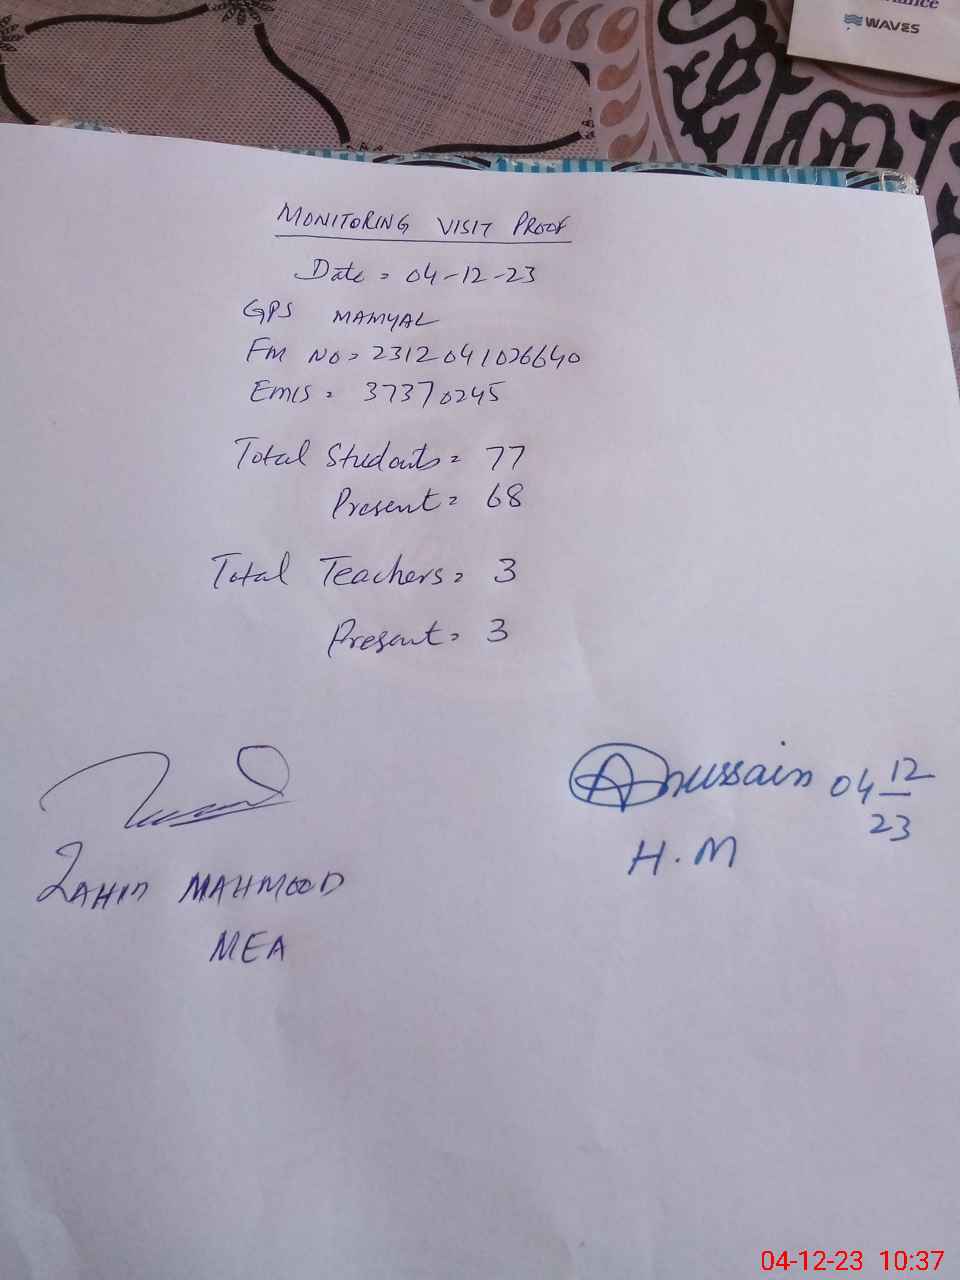 WAVES
MONITORING VISIT PROOF
Date = 04-12-23
GPS MAMYAL
FM NO = 2312041026640
EMIS = 37370245
Total Students = 77
Present = 68
Total Teachers = 3
Present = 3
Hussain 04 12/23
H.M
MAHMOOD
MEA
04-12-23 10:37